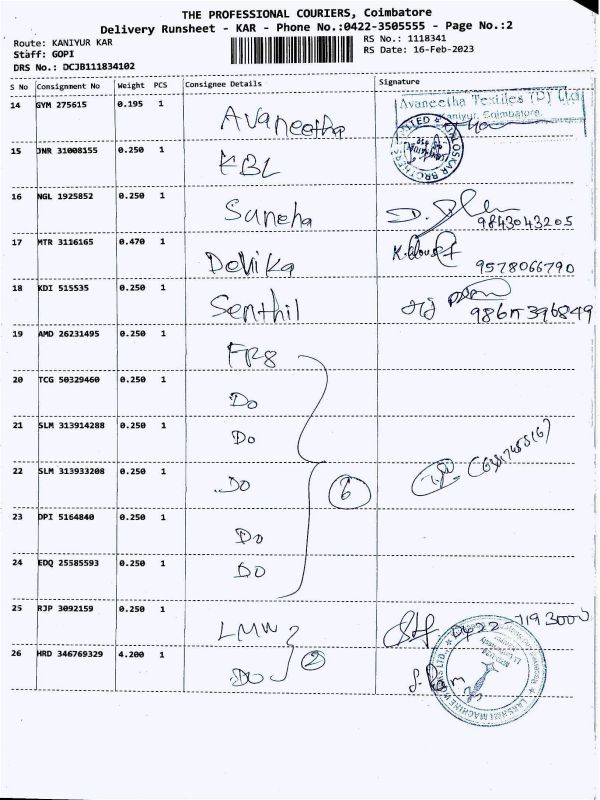 THE PROFESSIONAL COURIERS, Coimbatore
Delivery Runsheet - KAR - Phone No.:0422-3505555 - Page No.:2
Route: KANIYUR KAR
Staff: GOPI
DRS No.: DCJB111834102
RS No.: 1118341
RS Date: 16-Feb-2023
S No Consignment No Weight PCS Consignee Details Signature
14 GYM 275615 0.195 1 Avaneetha
Avaneetha Textiles (P) Ltd
Kaniyur, Coimbatore.
15 JNR 31008155 0.250 1 KBL
16 NGL 1925852 0.250 1 Suneha 9843043205
17 MTR 3116165 0.470 1 Devika 9578066790
18 KDI 515535 0.250 1 Senthil
19 AMD 26231495 0.250 1 FR8
20 TCG 50329460 0.250 1 Do
21 SLM 313914288 0.250 1 Do
22 SLM 313933208 0.250 1 Do 6
23 DPI 5164840 0.250 1 Do
24 EDQ 25585593 0.250 1 Do
25 RJP 3092159 0.250 1 LMW 0422-7193000
26 HRD 346769329 4.200 1 Do 2
LAKSHMI MACHINE WORKS LTD.